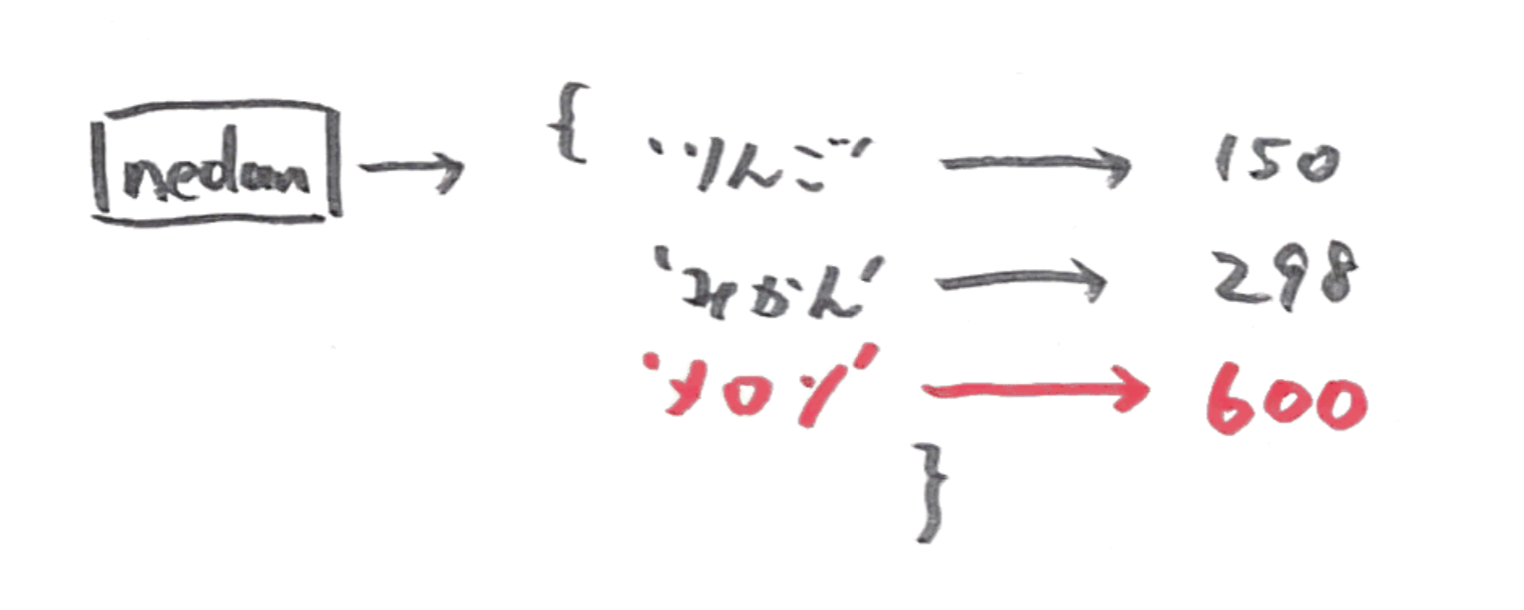 nedan → { 'りんご' → 150
'みかん' → 298
'メロン' → 600
}